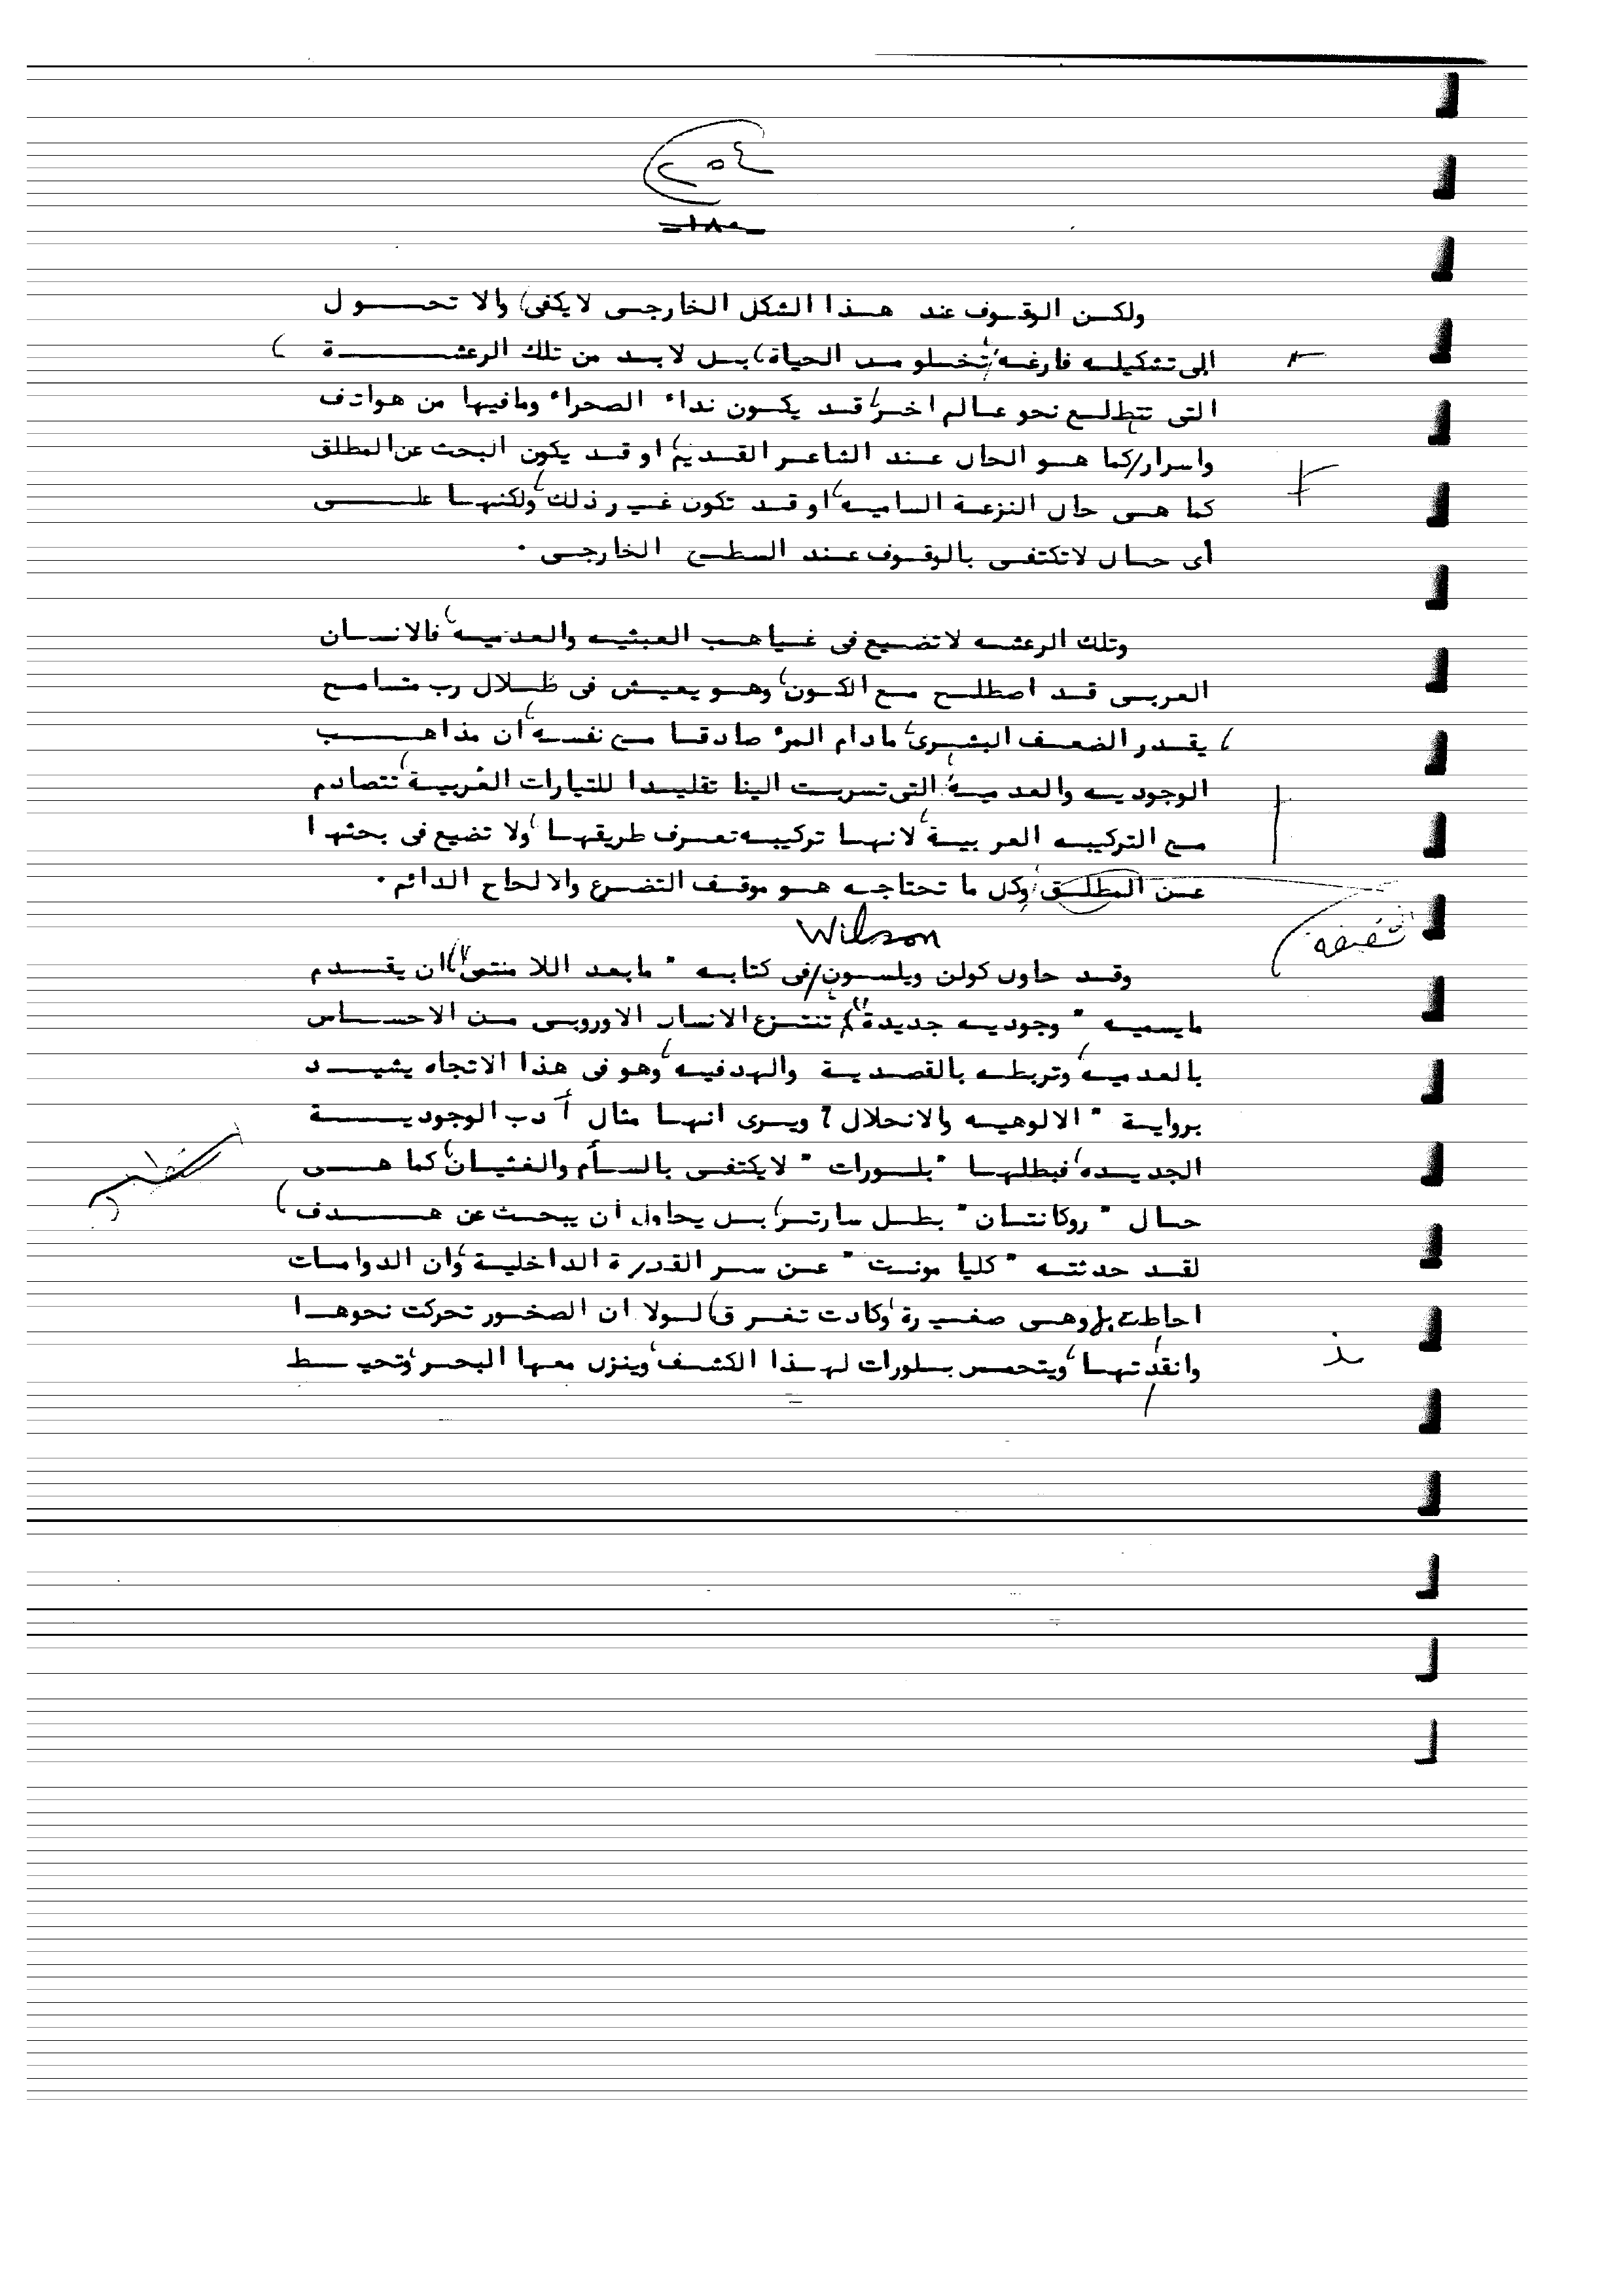 -١٨٠-
ولكن الوقوف عند هذا الشكل الخارجى لايكفى، والا تحول
الى تشكيليه فارغه، تخلو من الحياة، بل لابد من تلك الرعشة
التى تتطلع نحو عالم اخر، قد يكون نداء الصحراء ومافيها من هواتف
واسرار/كما هو الحال عند الشاعر القديم، او قد يكون البحث عن المطلق
كما هى حال النزعة الساميه، او قد تكون غير ذلك، ولكنها على
أى حال لاتكتفى بالوقوف عند السطح الخارجى ٠
وتلك الرعشه لاتضيع فى غياهب العبثيه والعدميه، فالانسان
العربى قد اصطلح مع الكون، وهو يعيش فى ظلال رب متسامح
، يقدر الضعف البشرى، مادام المرء صادقا مع نفسه، ان مذاهب
الوجوديه والعدميه، التى تسربت الينا تقليدا للتيارات الغربية، تتصادم
مع التركيبه العربية، لانها تركيبه تعرف طريقها، ولا تضيع فى بحثها
عن المطلق، وكل ما تحتاجه هو موقف التضرع والالحاح الدائم ٠
Wilson
وقد حاول كولن ويلسون/فى كتابه " مابعد اللا منتمى" ان يقدم
مايسميه " وجوديه جديدة"، تنتزع الانسان الاوروبى من الاحساس
بالعدميه، وتربطه بالقصدية والهدفيه، وهو فى هذا الاتجاه يشيد
برواية " الالوهيه والانحلال " ويرى انها مثال أدب الوجودية
الجديده، فبطلها "بلورات " لايكتفى بالسأم والغثيان، كما هى
حال " روكانتان" بطل سارتر، بل يحاول أن يبحث عن هدف،
لقد حدثته " كليا مونت " عن سر القدرة الداخلية، وان الدوامات
احاطت بها وهى صغيرة، وكادت تغرق، لولا ان الصخور تحركت نحوها
وانقذتها، ويتحمس بلورات لهذا الكشف، وينزل معها البحر، وتحيط